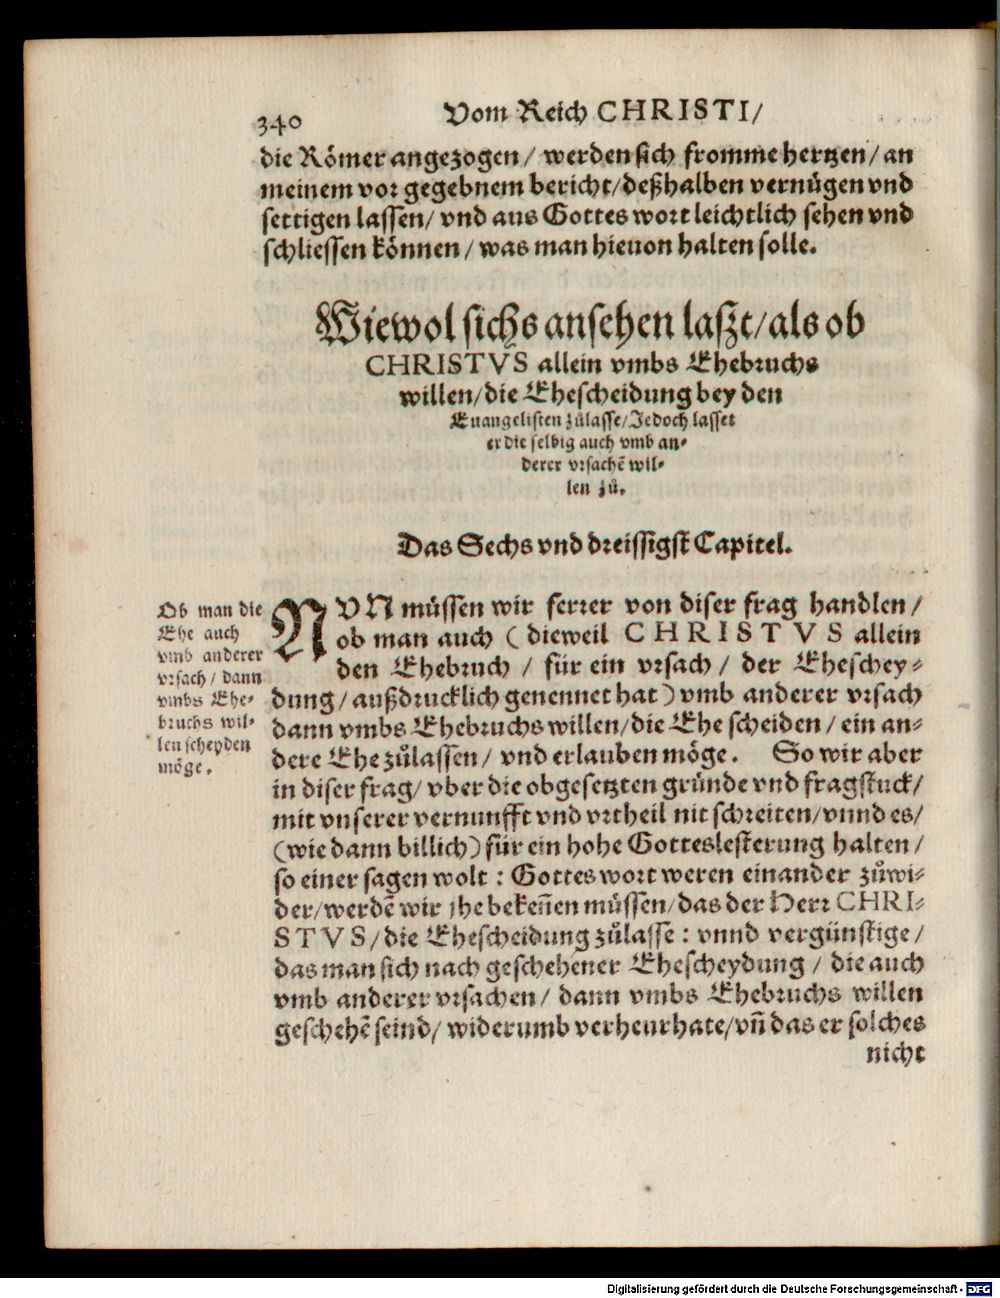 340
Vom Reich CHRISTI/
die Römer angezogen/ werden sich fromme hertzen/ an
meinem vor gegebnem bericht/deßhalben vernügen vnd
settigen lassen/ vnd aus Gottes wort leichtlich sehen vnd
schliessen können/ was man hieuon halten solle.
Wiewol sichs ansehen laszt/als ob
CHRISTVS allein vmbs Ehebruchs
willen/die Ehescheidung bey den
Euangelisten zůlasse/Jedoch lasset
er die selbig auch vmb an-
derer vrsachē wil-
len zů.
Das Sechs vnd dreissigst Capitel.
Ob man die
Ehe auch
vmb anderer
vrsach/ dann
vmbs Ehe-
bruchs wil-
len scheyden
möge.
NVN müssen wir ferrer von diser frag handlen/
ob man auch (dieweil CHRISTVS allein
den Ehebruch / für ein vrsach/ der Eheschey-
dung/außdrucklich genennet hat) vmb anderer vrsach
dann vmbs Ehebruchs willen/die Ehe scheiden/ ein an-
dere Ehe zůlassen/ vnd erlauben möge. So wir aber
in diser frag/ vber die obgesetzten gründe vnd fragstuck/
mit vnserer vernunfft vnd vrtheil nit schreiten/vnnd es/
(wie dann billich) für ein hohe Gotteslesterung halten/
so einer sagen wolt: Gottes wort weren einander zůwi-
der/werdē wir jhe bekeñen müssen/das der Herr CHRI-
STVS/die Ehescheidung zůlasse: vnnd vergünstige/
das man sich nach geschehener Ehescheydung/ die auch
vmb anderer vrsachen/ dann vmbs Ehebruchs willen
geschehē seind/ widerumb verheurhate/vñ das er solches
nicht
Digitalisierung gefördert durch die Deutsche Forschungsgemeinschaft - DFG